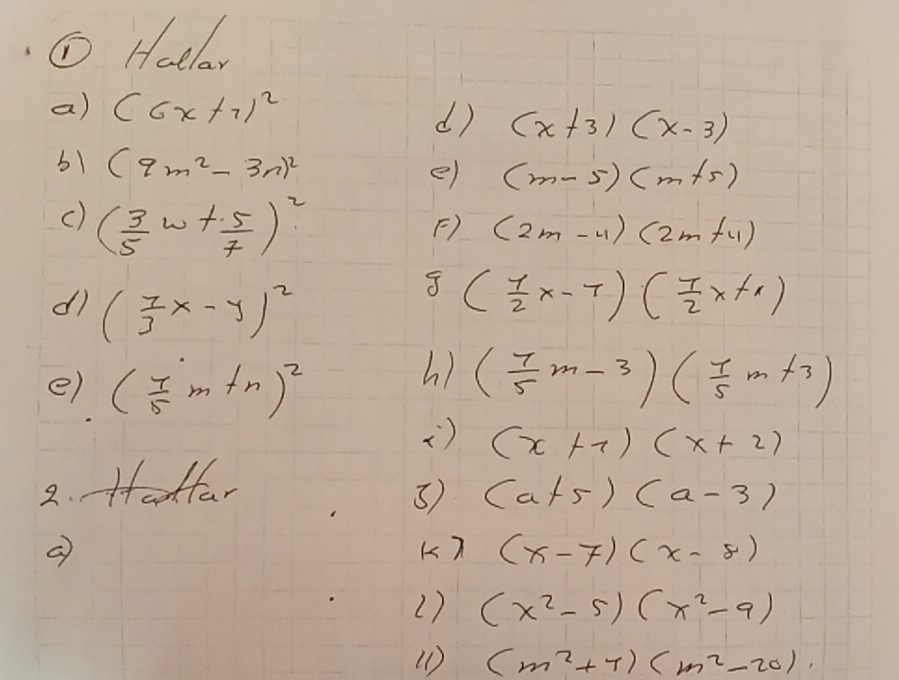 ① Hallar
a) (6x+1)²
b) (9m² - 3n)²
c) (3/5 w + 5/7)²
d) (1/3 x - y)²
e) (1/5 m + n)²
2. Hallar
a)
d) (x+3) (x-3)
e) (m-5) (m+5)
F) (2m-4) (2m+4)
g (1/2 x - 1) (1/2 x + 1)
h) (1/5 m - 3) (1/5 m + 3)
i) (x+1) (x+2)
J) (a+5) (a-3)
K) (x-7) (x-8)
l) (x²-5) (x²-9)
ll) (m²+1) (m²-20).